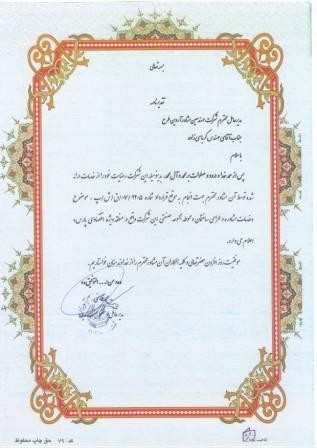 بسمه تعالی
تقدیرنامه
مدیرعامل محترم شرکت مهندسین مشاور آروین طرح
جناب آقای مهندس کرباسی زاده
با سلام
پس از حمد خدا و درود و صلوات بر محمد و آل محمد، بدینوسیله این شرکت رضایت خود را از خدمات ارائه
شده توسط آن مشاور محترم جهت انجام به موقع قرارداد شماره، موضوع
«خدمات مشاوره و طراحی ساختمان و محوطه مجموعه صنعتی این شرکت واقع در منطقه ویژه اقتصادی پارس»
اعلام می دارد.
موفقیت روز افزون حضرتعالی و کلیه همکاران آن مشاور محترم را از خداوند منان خواستاریم.
مدیرعامل
کد: ۷۹۰ حق چاپ محفوظ